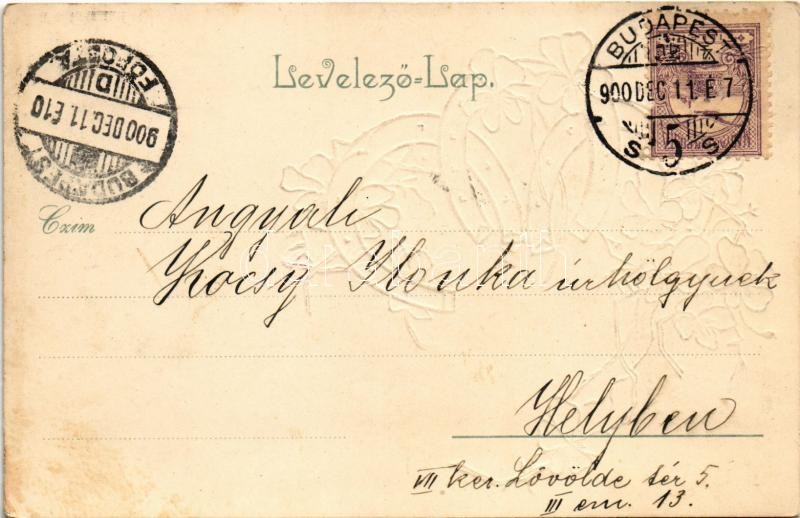 Levelező-Lap.
BUDAPEST
900 DEC 11 É 7
5
BUDAPEST
900 DEC. 11. É10
D
FŐPOSTA
Czim
Angyali
Kocsy Ilonka úrhölgynek
Helyben
VII ker. Lövölde tér 5.
III em. 13.